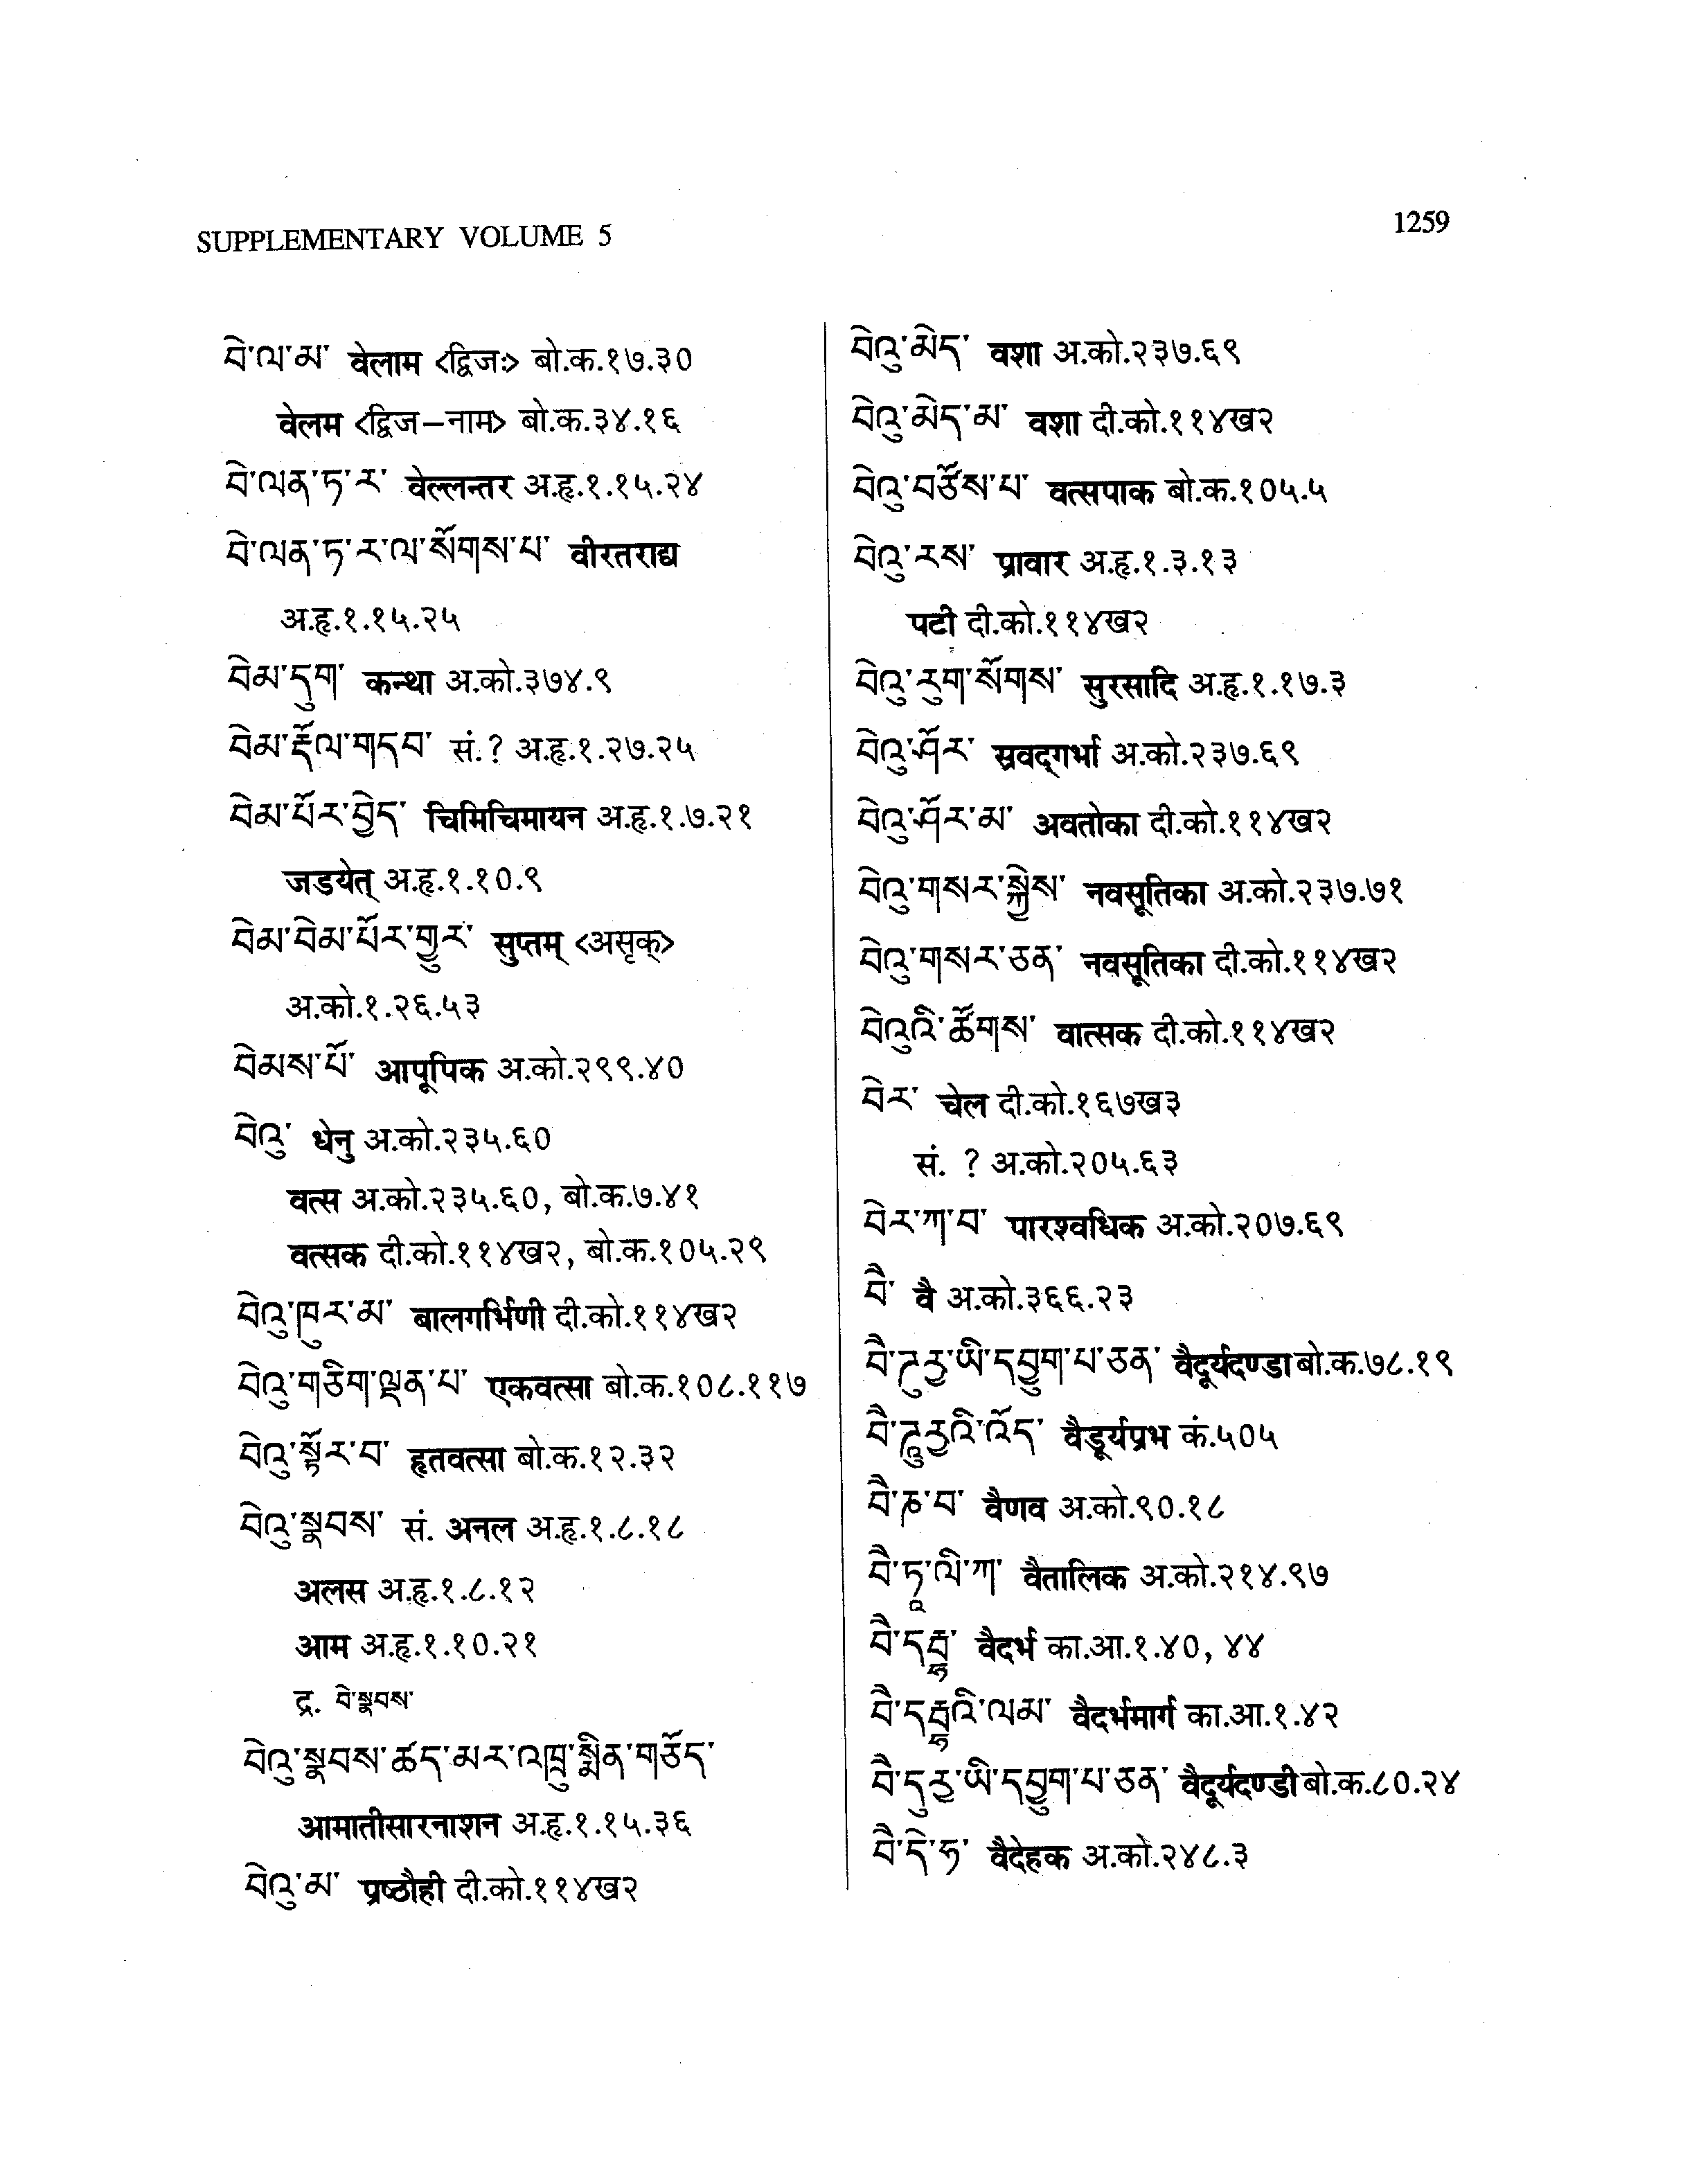 SUPPLEMENTARY VOLUME 5
1259
བེ་ལ་མ་ वेलाम <द्विजः> बो.क.१७.३०
वेलम <द्विज–नाम> बो.क.३४.१६
བེ་ལན་ཏ་ར་ वेल्लन्तर अ.हृ.१.१५.२४
བེ་ལན་ཏ་ར་ལ་སོགས་པ་ वीरतराद्य
अ.हृ.१.१५.२५
བེམ་དུག་ कन्था अ.को.३७४.९
བེམ་རྡོལ་གདབ་ सं.? अ.हृ.१.२७.२५
བེམ་པོར་བྱེད་ चिमिचिमायन अ.हृ.१.७.२१
जडयेत् अ.हृ.१.१०.९
བེམ་བེམ་པོར་གྱུར་ सुप्तम् <असृक्>
अ.को.१.२६.५३
བེམས་པོ་ आपूपिक अ.को.२९९.४०
བེའུ་ धेनु अ.को.२३५.६०
वत्स अ.को.२३५.६०, बो.क.७.४१
वत्सक दी.को.११४ख२, बो.क.१०५.२९
བེའུ་ཁུར་མ་ बालगर्भिणी दी.को.११४ख२
བེའུ་གཅིག་ལྡན་པ་ एकवत्सा बो.क.१०८.११७
བེའུ་སྟོར་བ་ हृतवत्सा बो.क.१२.३२
བེའུ་སྣབས་ सं. अनल अ.हृ.१.८.१८
अलस अ.हृ.१.८.१२
आम अ.हृ.१.१०.२१
द्र. བེ་སྣབས་
བེའུ་སྣབས་ཚད་མར་འཁྲུ་སྨིན་གཅོད་
आमातीसारनाशन अ.हृ.१.१५.३६
བེའུ་མ་ प्रष्ठौही दी.को.११४ख२
བེའུ་མེད་ वशा अ.को.२३७.६९
བེའུ་མེད་མ་ वशा दी.को.११४ख२
བེའུ་བཙོས་པ་ वत्सपाक बो.क.१०५.५
བེའུ་རས་ प्रावार अ.हृ.१.३.१३
पटी दी.को.११४ख२
བེའུ་རུག་སོགས་ सुरसादि अ.हृ.१.१७.३
བེའུ་ཤོར་ स्रवद्गर्भा अ.को.२३७.६९
བེའུ་ཤོར་མ་ अवतोका दी.को.११४ख२
བེའུ་གསར་སྐྱེས་ नवसूतिका अ.को.२३७.७१
བེའུ་གསར་ཅན་ नवसूतिका दी.को.११४ख२
བེའུའི་ཚོགས་ वात्सक दी.को.११४ख२
བེར་ चेल दी.को.१६७ख३
सं. ? अ.को.२०५.६३
བེར་ཀ་བ་ पारश्वधिक अ.को.२०७.६९
བཻ་ वै अ.को.३६६.२३
བཻ་ཌུརྱ་ཡི་དབྱུག་པ་ཅན་ वैदूर्यदण्डा बो.क.७८.१९
བཻ་ཌཱུརྱའི་འོད་ वैडूर्यप्रभ कं.५०५
བཻ་ཎ་བ་ वैणव अ.को.९०.१८
བཻ་ཏཱ་ལི་ཀ་ वैतालिक अ.को.२१४.९७
བཻ་དརྦྷ་ वैदर्भ का.आ.१.४०, ४४
བཻ་དརྦྷའི་ལམ་ वैदर्भमार्ग का.आ.१.४२
བཻ་དུརྱ་ཡི་དབྱུག་པ་ཅན་ वैदूर्यदण्डी बो.क.८०.२४
བཻ་དེ་ཧ་ वैदेहक अ.को.२४८.३